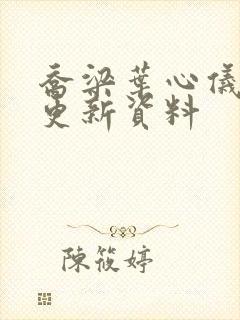 喬梁葉心儀
更新資料
陳筱婷